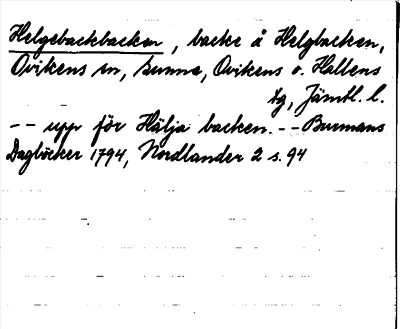 Helgebackbacken, backe å Helgbacken,
Ovikens sn, Sunne, Ovikens o. Hallens
tg, Jämtl. l.
-- upp för Hälja backen. -- Burmans
Dagböcker 1794, Nordlander 2 s. 94